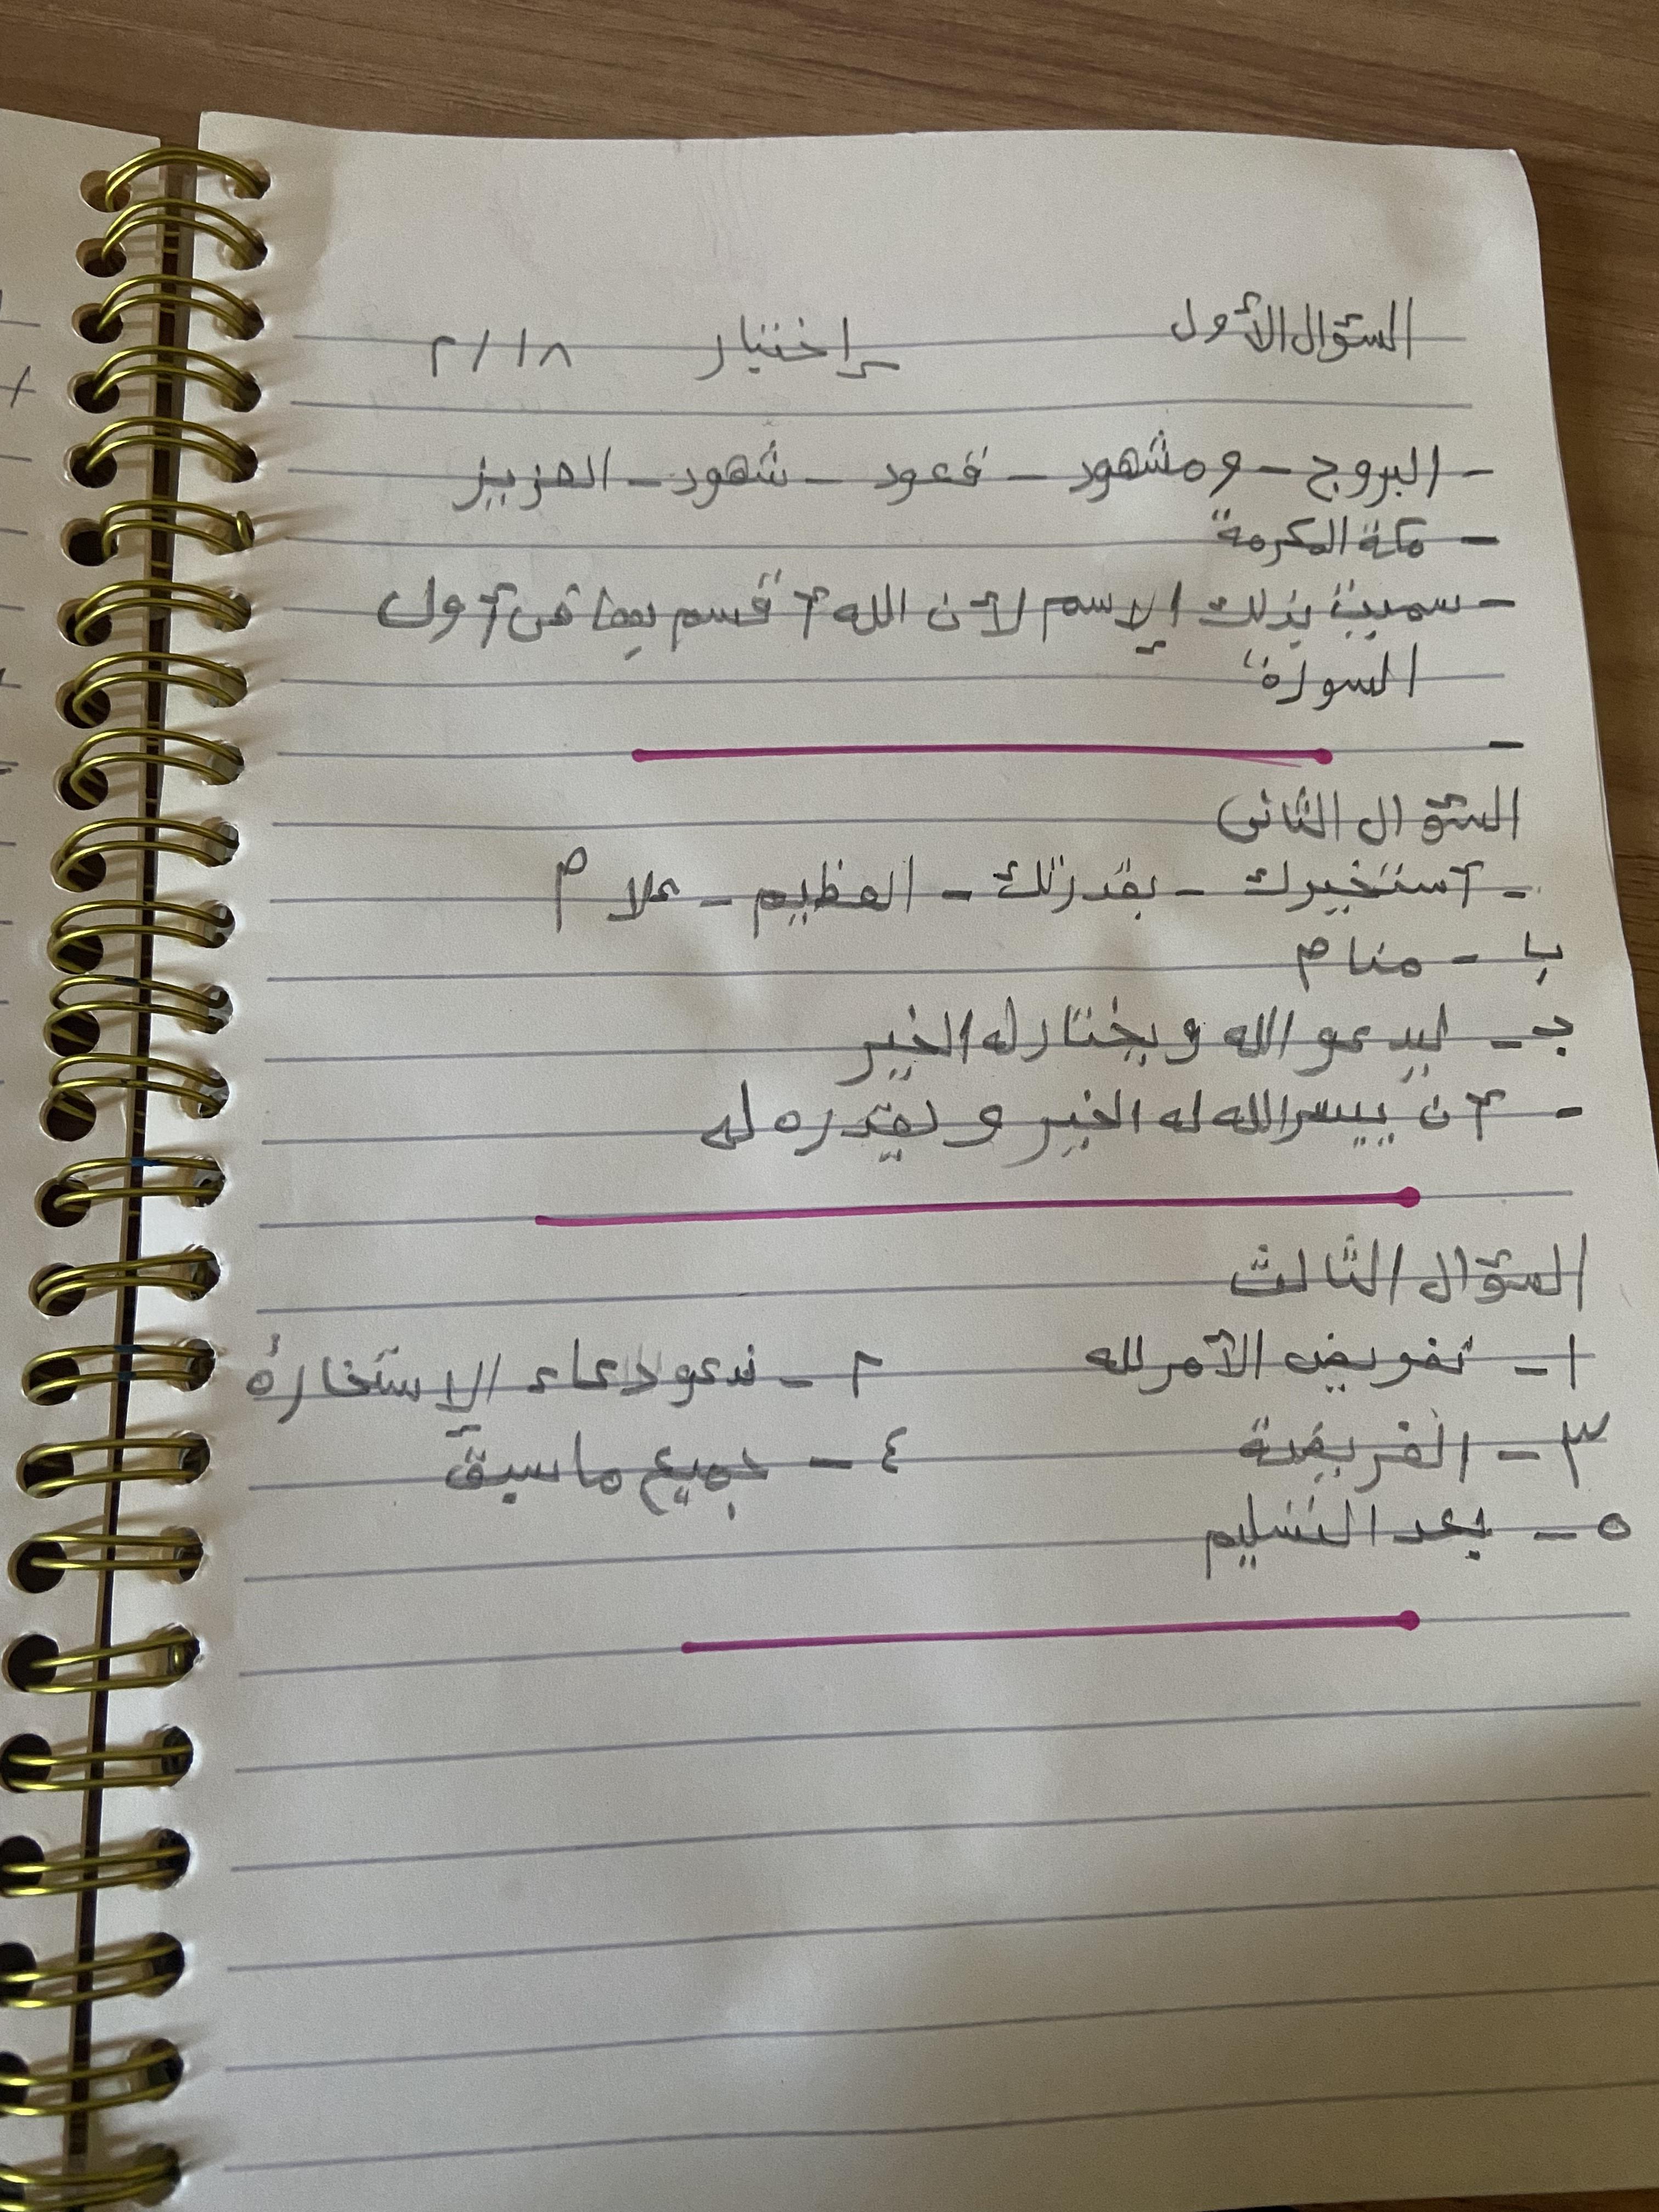 السؤال الأول إختبار ٢/١٨
- البروج - ومشهود - قعود - شهود - العزيز
- مكة المكرمة
- سميت بذلك الإسم لأن الله أقسم بها في أول
السورة
-
السؤال الثانى
- أستخيرك - بقدرتك - العظيم - علام
ب - منام
جـ - ليدعو الله ويختار له الخير
- أن ييسر الله له الخير و يقدره له
السؤال الثالث
١ - تفويض الأمر لله ٢ - ندعو دعاء الإستخارة
٣ - الفريضة ٤ - جميع ما سبق
٥ - بعد التسليم